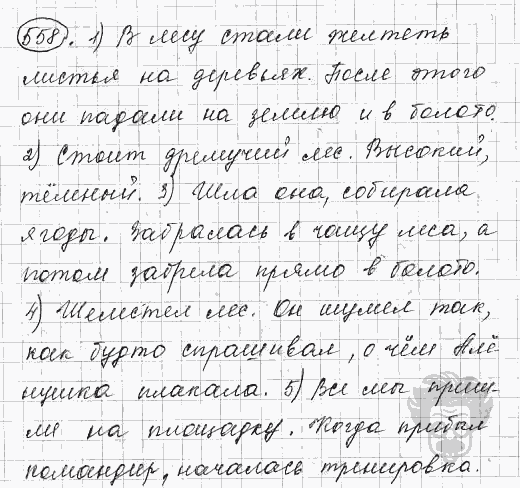 558. 1) В лесу стали желтеть
листья на деревьях. После этого
они падали на землю и в болото.
2) Стоит дремучий лес. Высокий,
тёмный. 3) Шла она, собирала
ягоды. Забралась в чащу леса, а
потом забрела прямо в болото.
4) Шелестел лес. Он шумел так,
как будто спрашивал, о чём Алё-
нушка плакала. 5) Все мы приш-
ли на площадку. Когда прибыл
командир, началась тренировка.